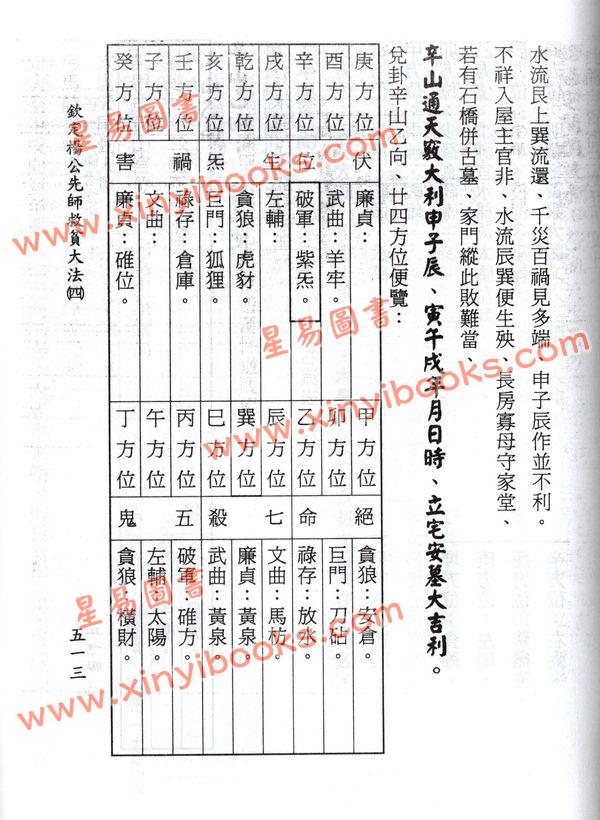 水流艮上巽流還、千災百禍見多端、申子辰作並不利。
不祥入屋主官非、水流辰巽便生殃、長房寡母守家堂、
若有石橋併古墓、家門縱此敗難當、
辛山通天竅大利申子辰、寅午戌年月日時、立宅安墓大吉利。
兌卦辛山乙向、廿四方位便覽：
庚方位
酉方位
辛方位
戌方位
乾方位
亥方位
壬方位
子方位
癸方位
伏位生炁禍害
廉貞：
武曲：羊牢。
破軍：紫炁。
左輔：
貪狼：虎豺。
巨門：狐狸。
祿存：倉庫。
文曲：
廉貞：碓位。
甲方位
卯方位
乙方位
辰方位
巽方位
巳方位
丙方位
午方位
丁方位
絕命七殺五鬼
貪狼：安倉。
巨門：刀砧。
祿存：放水。
文曲：馬枋。
廉貞：黃泉。
武曲：黃泉。
破軍：碓方。
左輔：太陽。
貪狼：橫財。
欽定楊公先師救貧大法㈣
五一三
星易圖書
www.xinyibooks.com
星易圖書
www.xinyibooks.com
星易圖書
www.xinyibooks.com